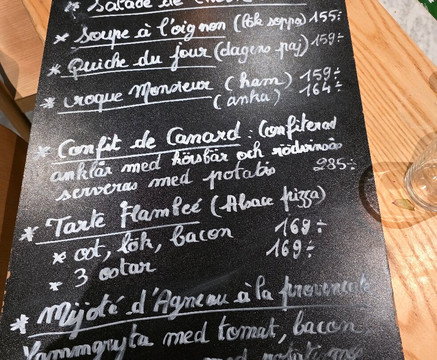 * Salade de
* Soupe à l'oignon (lök soppa) 155:-
* Quiche du jour (dagens paj) 159:-
* Croque Monsieur (ham) 159:-
(anka) 164:-
* Confit de Canard : Confiterad
anklår med körsbär och rödvinsås
serveras med potatis 285:-
* Tarte Flambée (Alsace pizza)
* ost, lök, bacon 169:-
* 3 ostar 169:-
* Mijoté d'Agneau à la provençale
Lammgryta med tomat, bacon
med